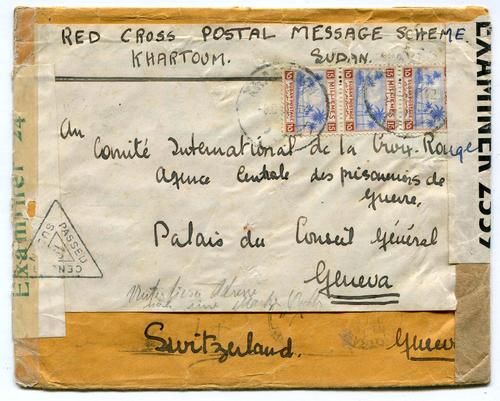 RED CROSS POSTAL MESSAGE SCHEME.
KHARTOUM. SUDAN.
15 MILLIEMES 15
15 MILLIEMES 15
Au
Comité International de la Croix-Rouge
Agence Centrale des prisonniers de
Guerre,
Palais du Conseil Général
Geneva
Switzerland.
Examiner 24
PASSED
CEN
SUD
EXAMINER 2557